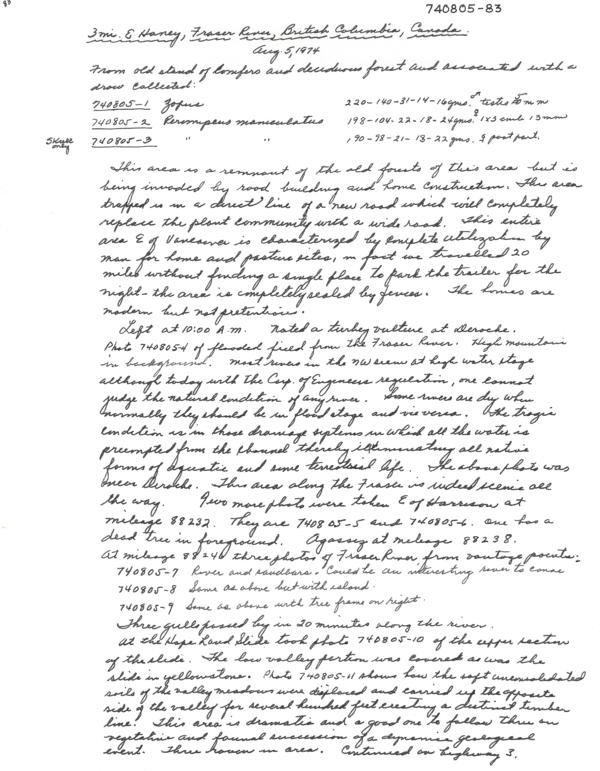 83
740805-83
3mi. E Haney, Fraser River, British Columbia, Canada.
Aug. 5, 1974
From old stand of Conifers and deciduous forest and associated with a
draw collected:
740805-1 Zapus 220-140-31-14-16gms. ♂ testes 5 mm
740805-2 Peromyscus maniculatus 198-104-22-18-24gms. ♀ 1x3 emb 13mm
Skull only 740805-3 " " 190-98-21-18-22gms. ♀ post part.
This area is a remnant of the old forests of this area but is
being invaded by road building and home construction. The area
trapped is in a direct line of a new road which will completely
replace the plant community with a wide road. This entire
area E of Vancouver is characterized by complete utilization by
man for home and pasture sites, in fact we travelled 20
miles without finding a single place to park the trailer for the
night - the area is completely sealed by fences. The homes are
modern but not pretentious.
Left at 10:00 A.M. Noted a turkey vulture at Deroche.
Photo 740805-4 of flooded field from the Fraser River. High mountain
in background. Most rivers in the NW seem at high water stage
although today with the Corp. of Engineers regulation, one cannot
judge the natural condition of any river. Some rivers are dry when
normally they should be in flood stage and vie versa. The tragic
condition is in those drainage systems in which all the water is
preempted from the channel thereby eliminating all native
forms of aquatic and some terrestrial life. The above photo was
near Deroche. This area along the Fraser is indeed scenic all
the way. Two more photos were taken E of Harrison at
mileage 88232. They are 740805-5 and 740805-6. One has a
dead tree in foreground. Agassiz at mileage 88238.
At mileage 88246 three photos of Fraser River from vantage points:
740805-7 River and sandbars. Could be an interesting river to canoe
740805-8 Same as above but with island.
740805-9 Same as above with tree frame on right.
Three gulls passed by in 20 minutes along the river.
At the Hope Land Slide took photo 740805-10 of the upper section
of the slide. The low valley portion was covered as was the
slide in yellowstone. Photo 740805-11 shows how the soft unconsolidated
soils of the valley meadows were displaced and carried up the opposite
side of the valley for several hundred feet creating a distinct timber
line. This area is dramatic and a good one to follow thru on
vegetative and faunal succession of a dynamic geological
event. Three raven in area. Continued on highway 3.